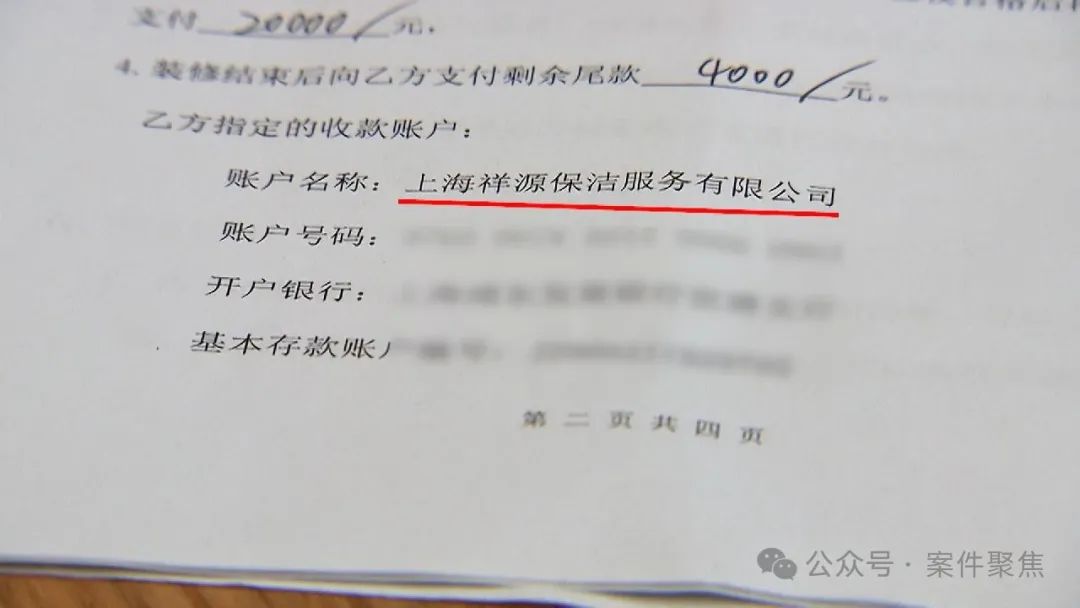 支付 20000/元.
4.装修结束后向乙方支付剩余尾款 4000/元。
乙方指定的收款账户：
账户名称：上海祥源保洁服务有限公司
账户号码：
开户银行：
基本存款账户
第二页共四页
公众号·案件聚焦